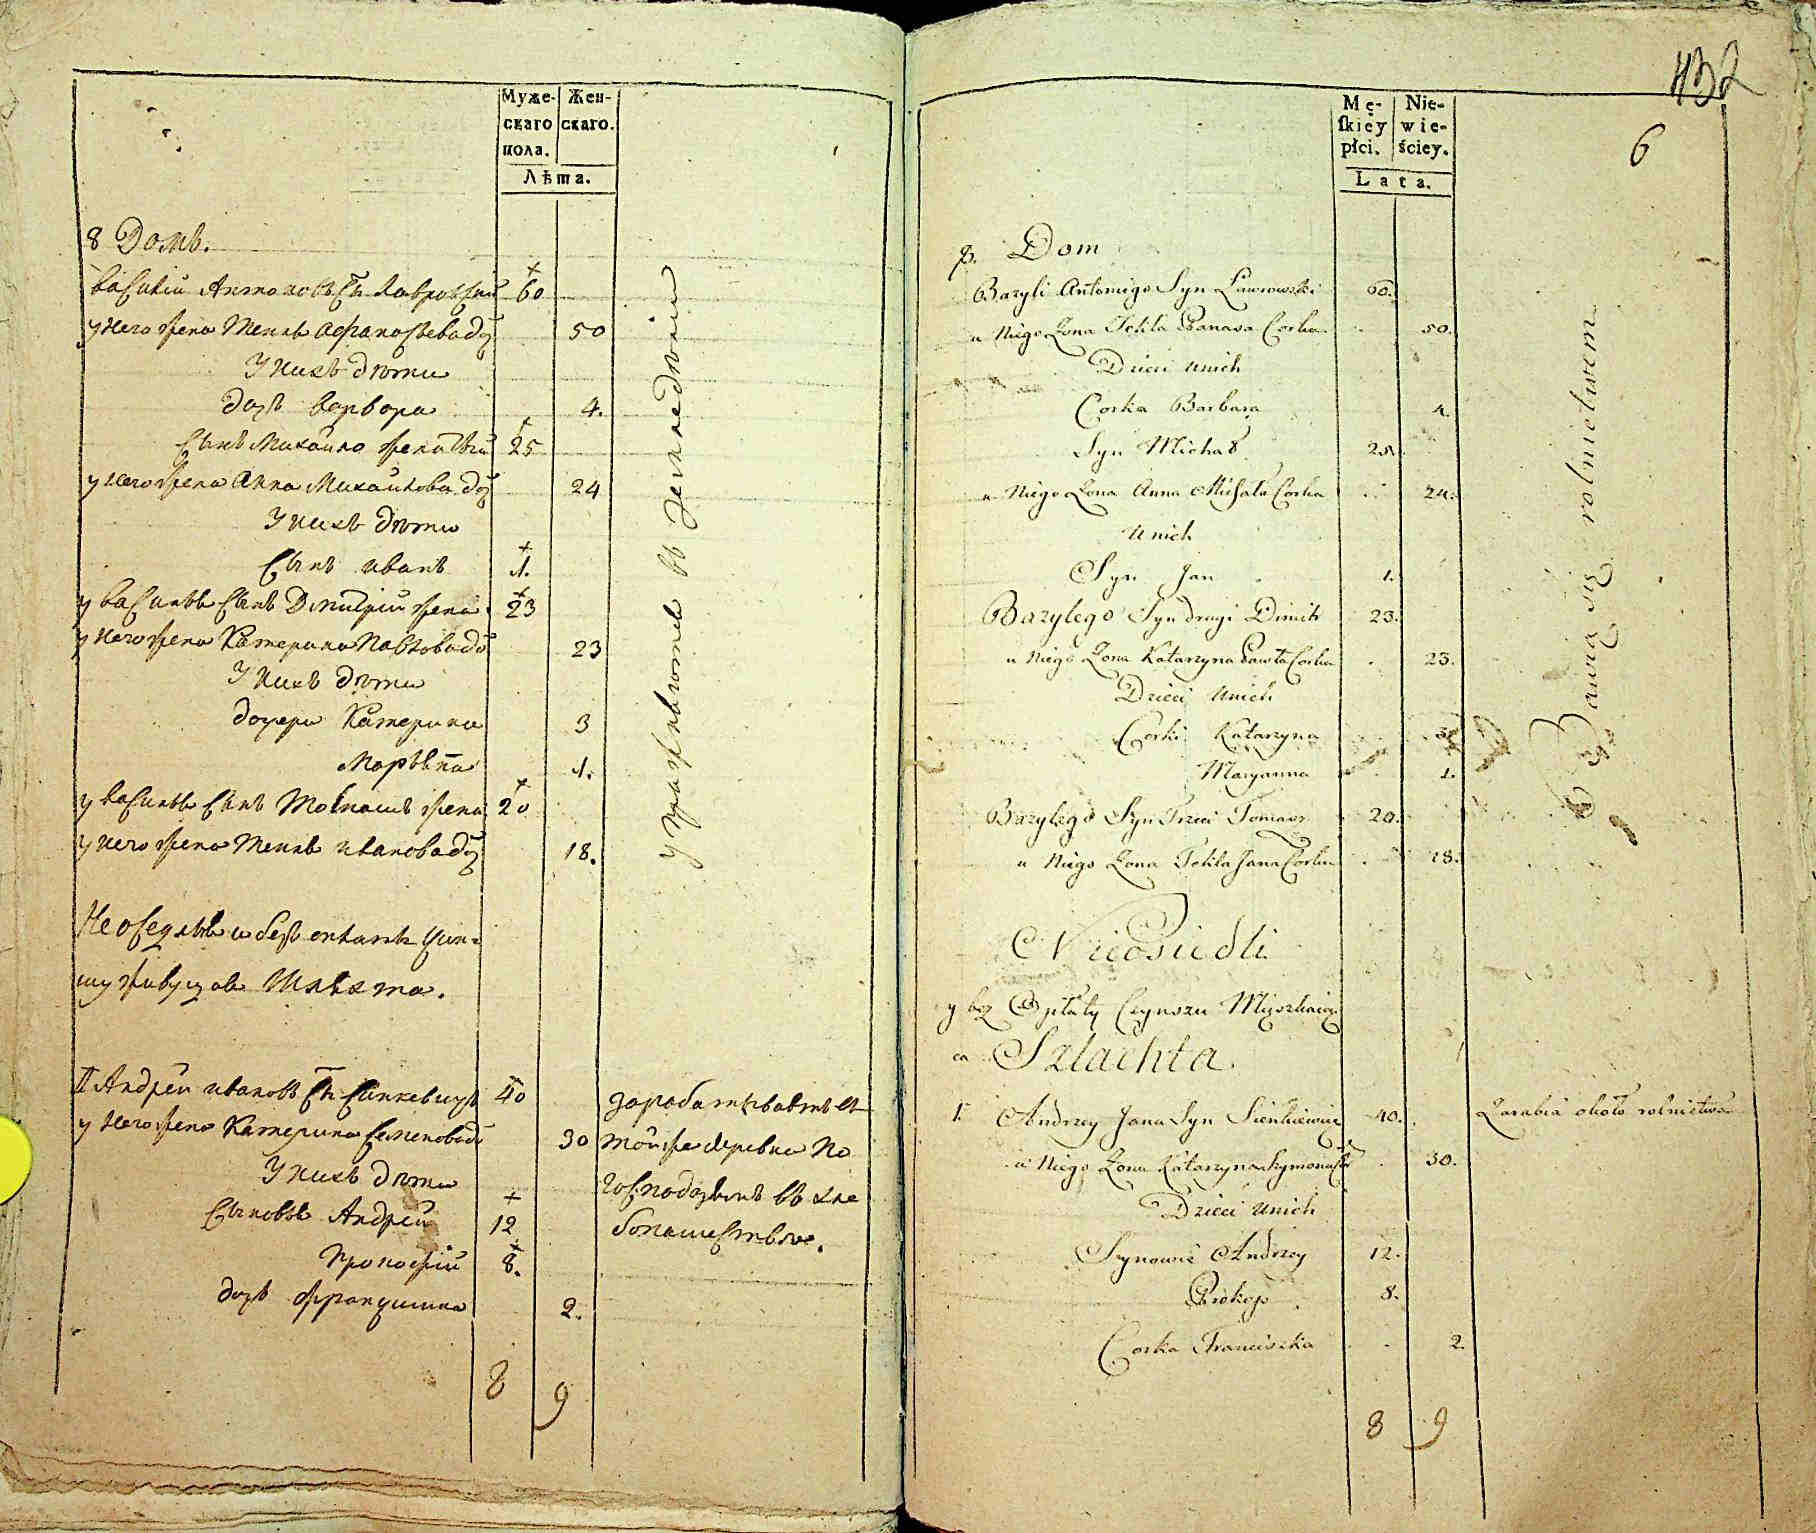 Муже-
скаго
пола.
Жен-
скаго.
Лѣта.
8 Домъ.
Василій Антоновъ Сн Лавровскій 60
у него жена Текля Афанасьева доч 50
У нихъ дѣти
дочь Варвара 4.
Сынъ Михайло женатый 25
у него жена Анна Михайлова доч 24
У нихъ дѣти
Сынъ иванъ 1.
у Василя Сынъ Дмитрій жена 23
у него жена Катерина Павлова до 23
У нихъ дѣти
дочери Катерина 3
Маріяна 1.
у Василя Сынъ Томашъ жена 20
у него жена Текля иванова доч 18.
упражняются въ земледѣліи
Неоседлая и безъ оплаты чин-
шу живущая Шляхта.
II Андрей ивановъ Сн Синкевичъ 40
у него жена Катерина Семенова до 30
У нихъ дѣти
Сыновья Андрей 12
Прокофій 8.
дочь Францишка 2.
зарабатываетъ въ
той же деревне по
господахъ въ хле
бопашестве.
8 9
432
6
Mę-
skiey
płci.
Nie-
wie-
ściey.
Lata.
8. Dom
Bazyli Antoniego Syn Ławrowski 60.
u Niego Żona Tekla Panasa Corka 50.
Dzieci u nich
Corka Barbara 4.
Syn Michał 25.
u Niego Żona Anna Michała Corka 24.
U nich
Syn Jan 1.
Bazylego Syn drugi Dimitr 23.
u Niego Żona Katarzyna Pawła Corka 23.
Dzieci u nich
Corki Katarzyna 3.
Maryanna 1.
Bazylego Syn Trzeci Tomasz 20.
u Niego Żona Tekla Jana Corka 18.
Bawią się rolnictwem
Nieosiedli
y bez Opłaty Czynszu Mieszkaią-
ca Szlachta
1. Andrzey Jana Syn Sienkiewicz 40. Zarabia około rolnictwa
u Niego Żona Katarzyna Szymona 30.
Dzieci u nich
Synowie Andrzey 12.
Prokop 8.
Corka Franciszka 2.
8 9